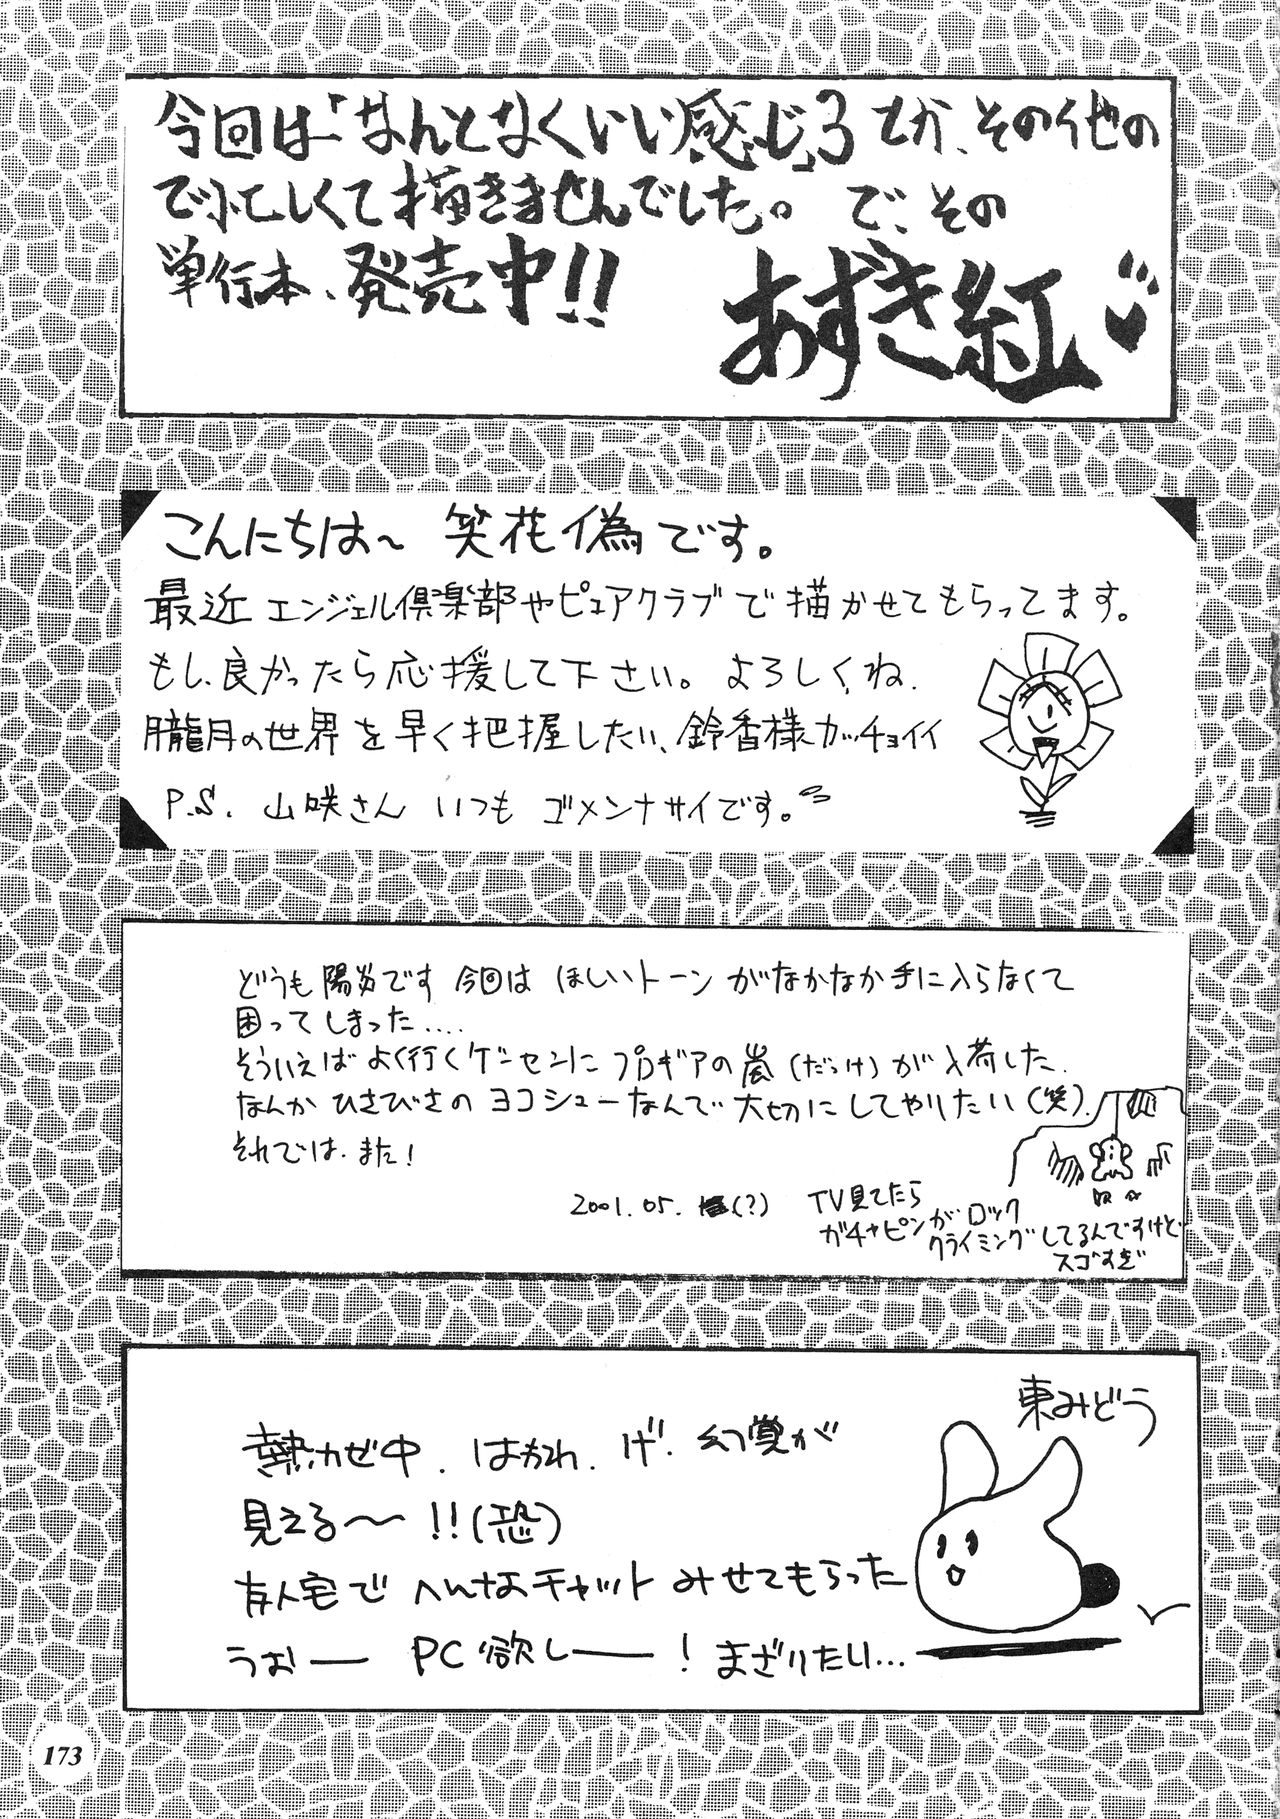 今回は「なんとなくいい感じ」3とか、その他の
で忙しくて描きませんでした。で、その
単行本、発売中!!
あずき紅
こんにちは～ 笑花偽です。
最近エンジェル倶楽部やピュアクラブで描かせてもらってます。
もし、良かったら応援して下さい。よろしくね.
朧月の世界を早く把握したい、鈴香様カッチョイイ
P.S. 山咲さん いつも ゴメンナサイです。
どうも陽炎です 今回は ほしいトーン がなかなか手に入らなくて
困ってしまった....
そういえばよく行くゲーセンに プロギアの嵐(だっけ)が入荷した.
なんか ひさびさの ヨコシューなんで 大切にしてやりたい(笑).
それでは.また!
2001.05. (?)
TV見てたら
ガチャピンが ロック
クライミングしてるんですけど
スゴすぎ
東みどう
熱カゼ中. はかれ. げ. 幻覚が
見える～～!!(恐)
友人宅で へんなチャット みせてもらった
うおー PC欲しー! まざりたい...
173